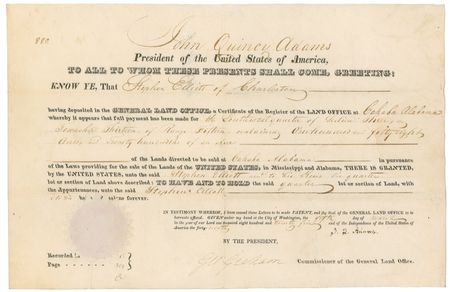 880
John Quincy Adams
President of the United States of America,
TO ALL TO WHOM THESE PRESENTS SHALL COME, GREETING:
KNOW YE, That Stephen Elliott of Charleston
having deposited in the GENERAL LAND OFFICE, a Certificate of the Register of the LAND OFFICE at Cahaba Alabama
whereby it appears that full payment has been made for the Southwest quarter of Section
Township of Range containing One hundred and forty eight
Acres
of the Lands directed to be sold at Cahaba Alabama in pursuance
of the Laws providing for the sale of the Lands of the UNITED STATES, in Mississippi and Alabama, THERE IS GRANTED,
by the UNITED STATES, unto the said Stephen Elliott the quarter
lot or section of Land above described: TO HAVE AND TO HOLD the said quarter lot or section of Land, with
the Appurtenances, unto the said Stephen Elliott
heirs and assigns forever.
IN TESTIMONY WHEREOF, I have caused these Letters to be made PATENT, and the Seal of the GENERAL LAND OFFICE to be
hereunto affixed. GIVEN under my hand at the City of Washington, the day of
in the year of our Lord one thousand eight hundred and and of the Independence of the United States of
America the
BY THE PRESIDENT,
J. Q. Adams
Recorded in Vol.
Page
Geo Graham Commissioner of the General Land Office.